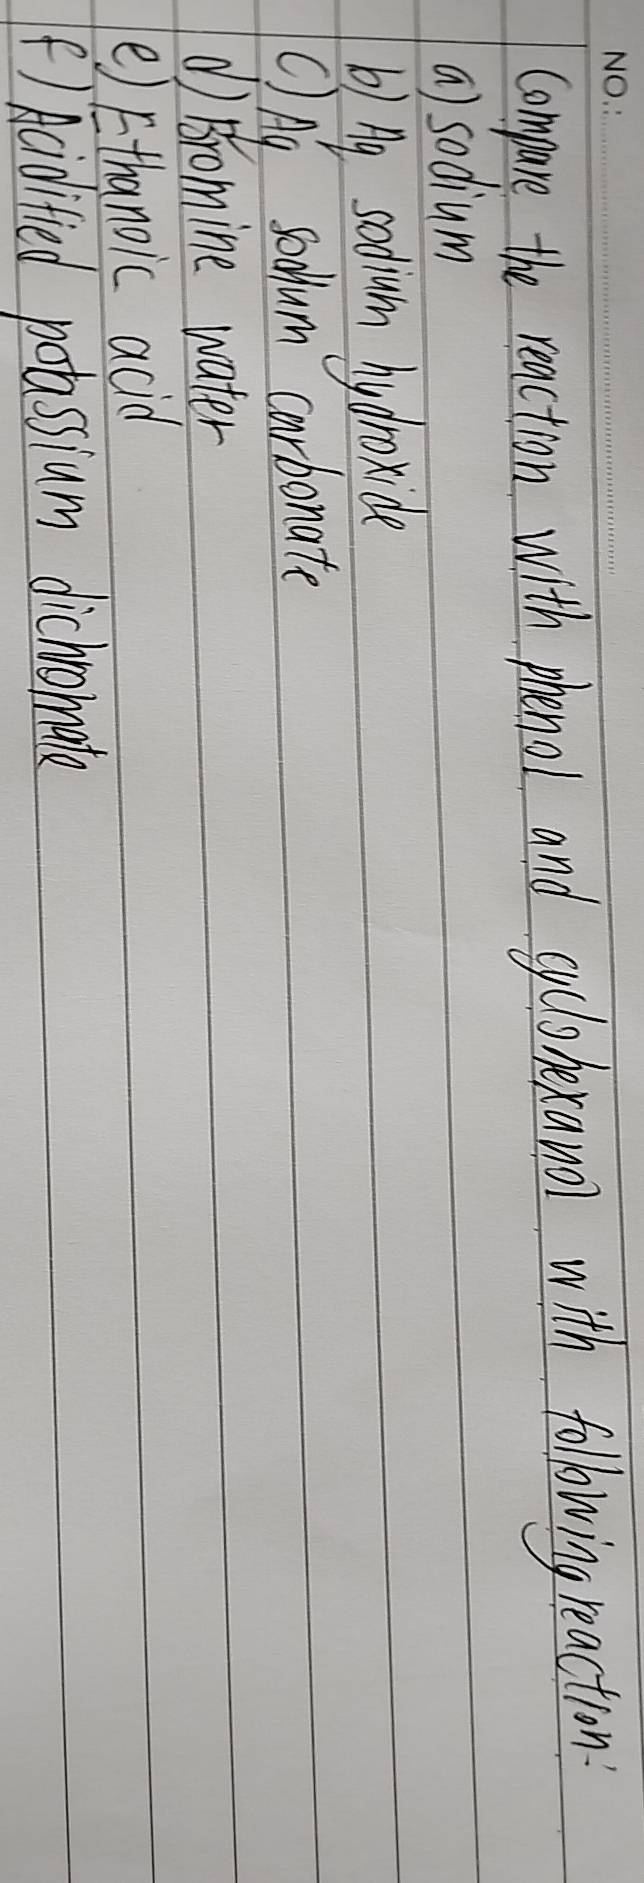 NO.:
Compare the reaction with phenol and cyclohexanol with following reaction:
a) sodium
b) Aq sodium hydroxide
c) Aq sodium carbonate
d) Bromine water
e) Ethanoic acid
f) Acidified potassium dichromate